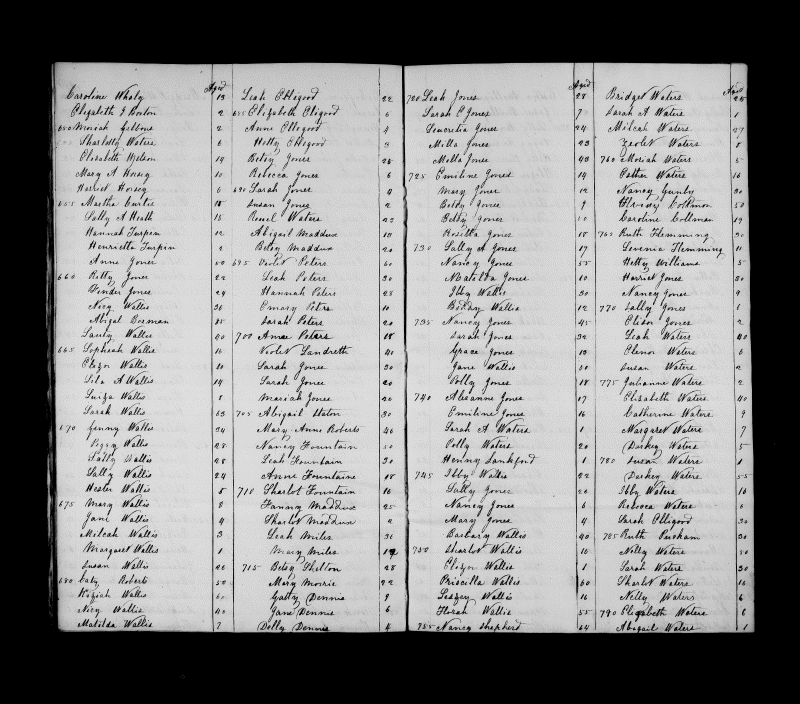 Aged
Caroline Whaly 13
Elizabeth E Horton 2
650 Moriah Gibbons 2
Sharlotty Waters 6
Elizabeth Nelson 14
Mary A Horsey 10
Harriet Horsey 6
655 Martha Curtis 15
Sally A Heath 15
Hannah Turpin 12
Henrietta Turpin 2
Anne Jones 50
660 Kitty Jones 22
Tinder Jones 24
Nicy Wallis 36
Abigal Dorman 15
Lauty Wallis 40
665 Sophiah Wallis 16
Elizor Wallis 10
Sila A Wallis 14
Luiza Wallis 1
Sarah Wallis 63
670 Jenny Wallis 34
Peggy Wallis 28
Sally Wallis 28
Sally Wallis 24
Hester Wallis 5
675 Mary Wallis 8
Jane Wallis 4
Milcah Wallis 3
Margaret Wallis 1
Susan Wallis 26
680 Caty Roberts 50
Keziah Wallis 60
Nicy Wallis 40
Matilda Wallis 7
Leah Elligood 22
685 Elizabeth Elligood 6
Anne Elligood 4
Hetty Elligood 3
Betsy Jones 25
Rebecca Jones 6
690 Sarah Jones 4
Susan Jones 2
Rewel Waters 23
Abigail Maddux 18
Betsy Maddux 20
695 Violet Peters 60
Leah Peters 30
Hannah Peters 28
Emary Peters 10
Sarah Peters 20
700 Anne Peters 18
Violet Landreth 40
Sarah Jones 30
Sarah Jones 20
Mariah Jones 20
705 Abigail Upton 30
Mary Anne Roberts 46
Nancy Fountain 50
Leah Fountain 30
Anne Fountaine 18
710 Sharlot Fountain 16
Fanny Maddux 25
Sharlot Maddux 2
Leah Miles 36
Mary Miles
715 Betsy Shelton 28
Mary Morris 22
Gatty Dennis 9
Jane Dennis 6
Dolly Dennis 4
Aged
720 Leah Jones 28
Sarah E Jones 7
Lucretia Jones 24
Milla Jones 23
Molla Jones 43
725 Emiline Jones 14
Mary Jones 12
Betsy Jones 9
Betty Jones 50
Rosetta Jones 18
730 Sally A Jones 17
Nancy Jones 55
Matilda Jones 10
Ibby Wallis 30
Biddy Wallis 12
735 Nancy Jones 45
Sarah Jones 32
Grace Jones 13
Jane Wallis 50
Polly Jones 18
740 Alexanne Jones 17
Emiline Jones 16
Sarah A Waters 1
Polly Waters 20
Henny Lankford 1
745 Ibby Wallis 22
Sally Jones 20
Nancy Jones 6
Mary Jones 4
Barbary Wallis 40
750 Sharlot Wallis 10
Elizor Wallis 1
Priscilla Wallis 60
Leszey Wallis 16
Florah Wallis 55
755 Nancy Shepherd 64
Aged
Bridget Waters 25
Sarah A Waters 1
Milcah Waters 27
Violet Waters 8
760 Moriah Waters 5
Esther Waters 16
Nancy Gunby 30
Collmon 50
Caroline Collmon 19
765 Ruth Flemming 30
Levenia Flemming 11
Hetty Williams 5
Harriet Jones 30
Nancy Jones 9
770 Sally Jones 6
Elison Jones 2
Leah Waters 40
Elenor Waters 6
Susan Waters 2
775 Julianne Waters 2
Elizabeth Waters 40
Catherine Waters 9
Margaret Waters 7
Darkey Waters 5
780 Susan Waters 1
Darkey Waters 55
Ibby Waters 16
Rebecca Waters 6
Sarah Elligood 30
785 Ruth 30
Nelly Waters 50
Sarah Waters 30
Sharlot Waters 10
Nelly Waters 6
790 Elizabeth Waters 6
Abigail Waters 1